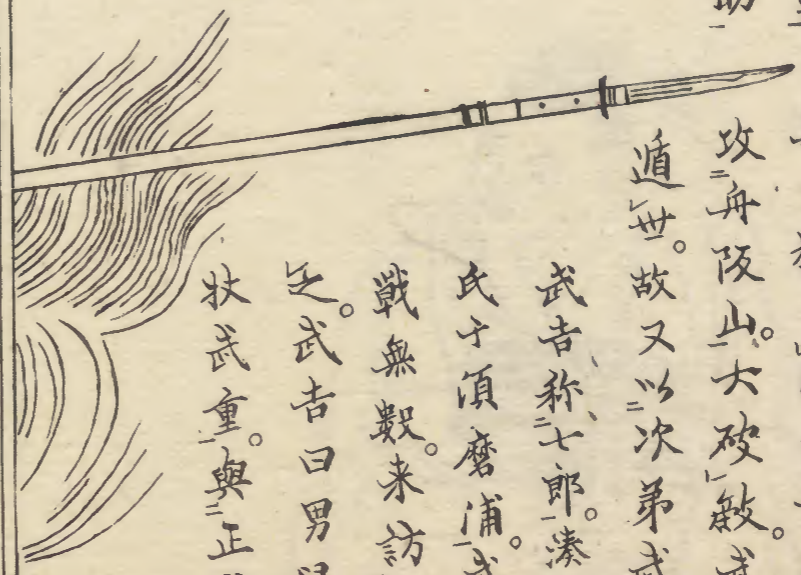 助
攻舟阪山。大破敵。武
遁世。故又以次弟武
武吉称七郎。湊
氏于須磨浦。武
戦無数。来訪
之。武吉曰男児
状武重。與正